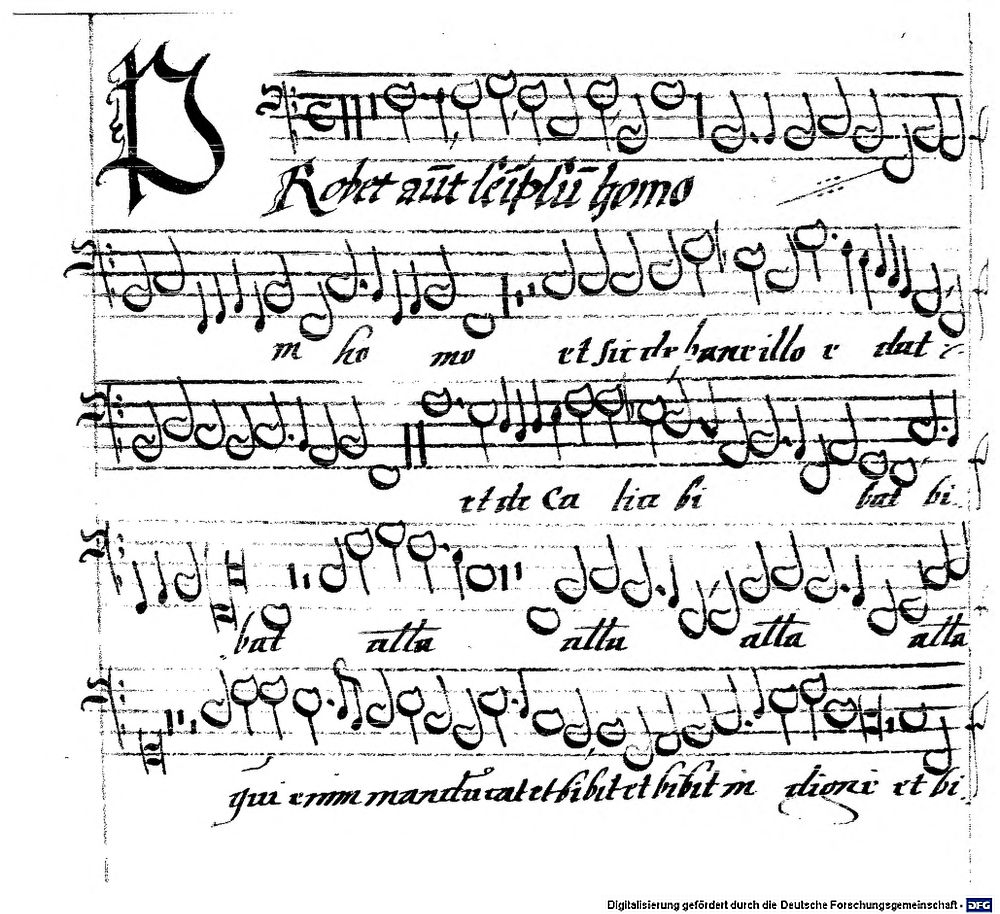 PRobet aūt seip̄sū homo
m ho mo et sic de pane illo e dat
et de Ca lice bi bat bi
bat alla alla alla alla
qui enim manducat et bibit et bibit in digne et bi
Digitalisierung gefördert durch die Deutsche Forschungsgemeinschaft - DFG